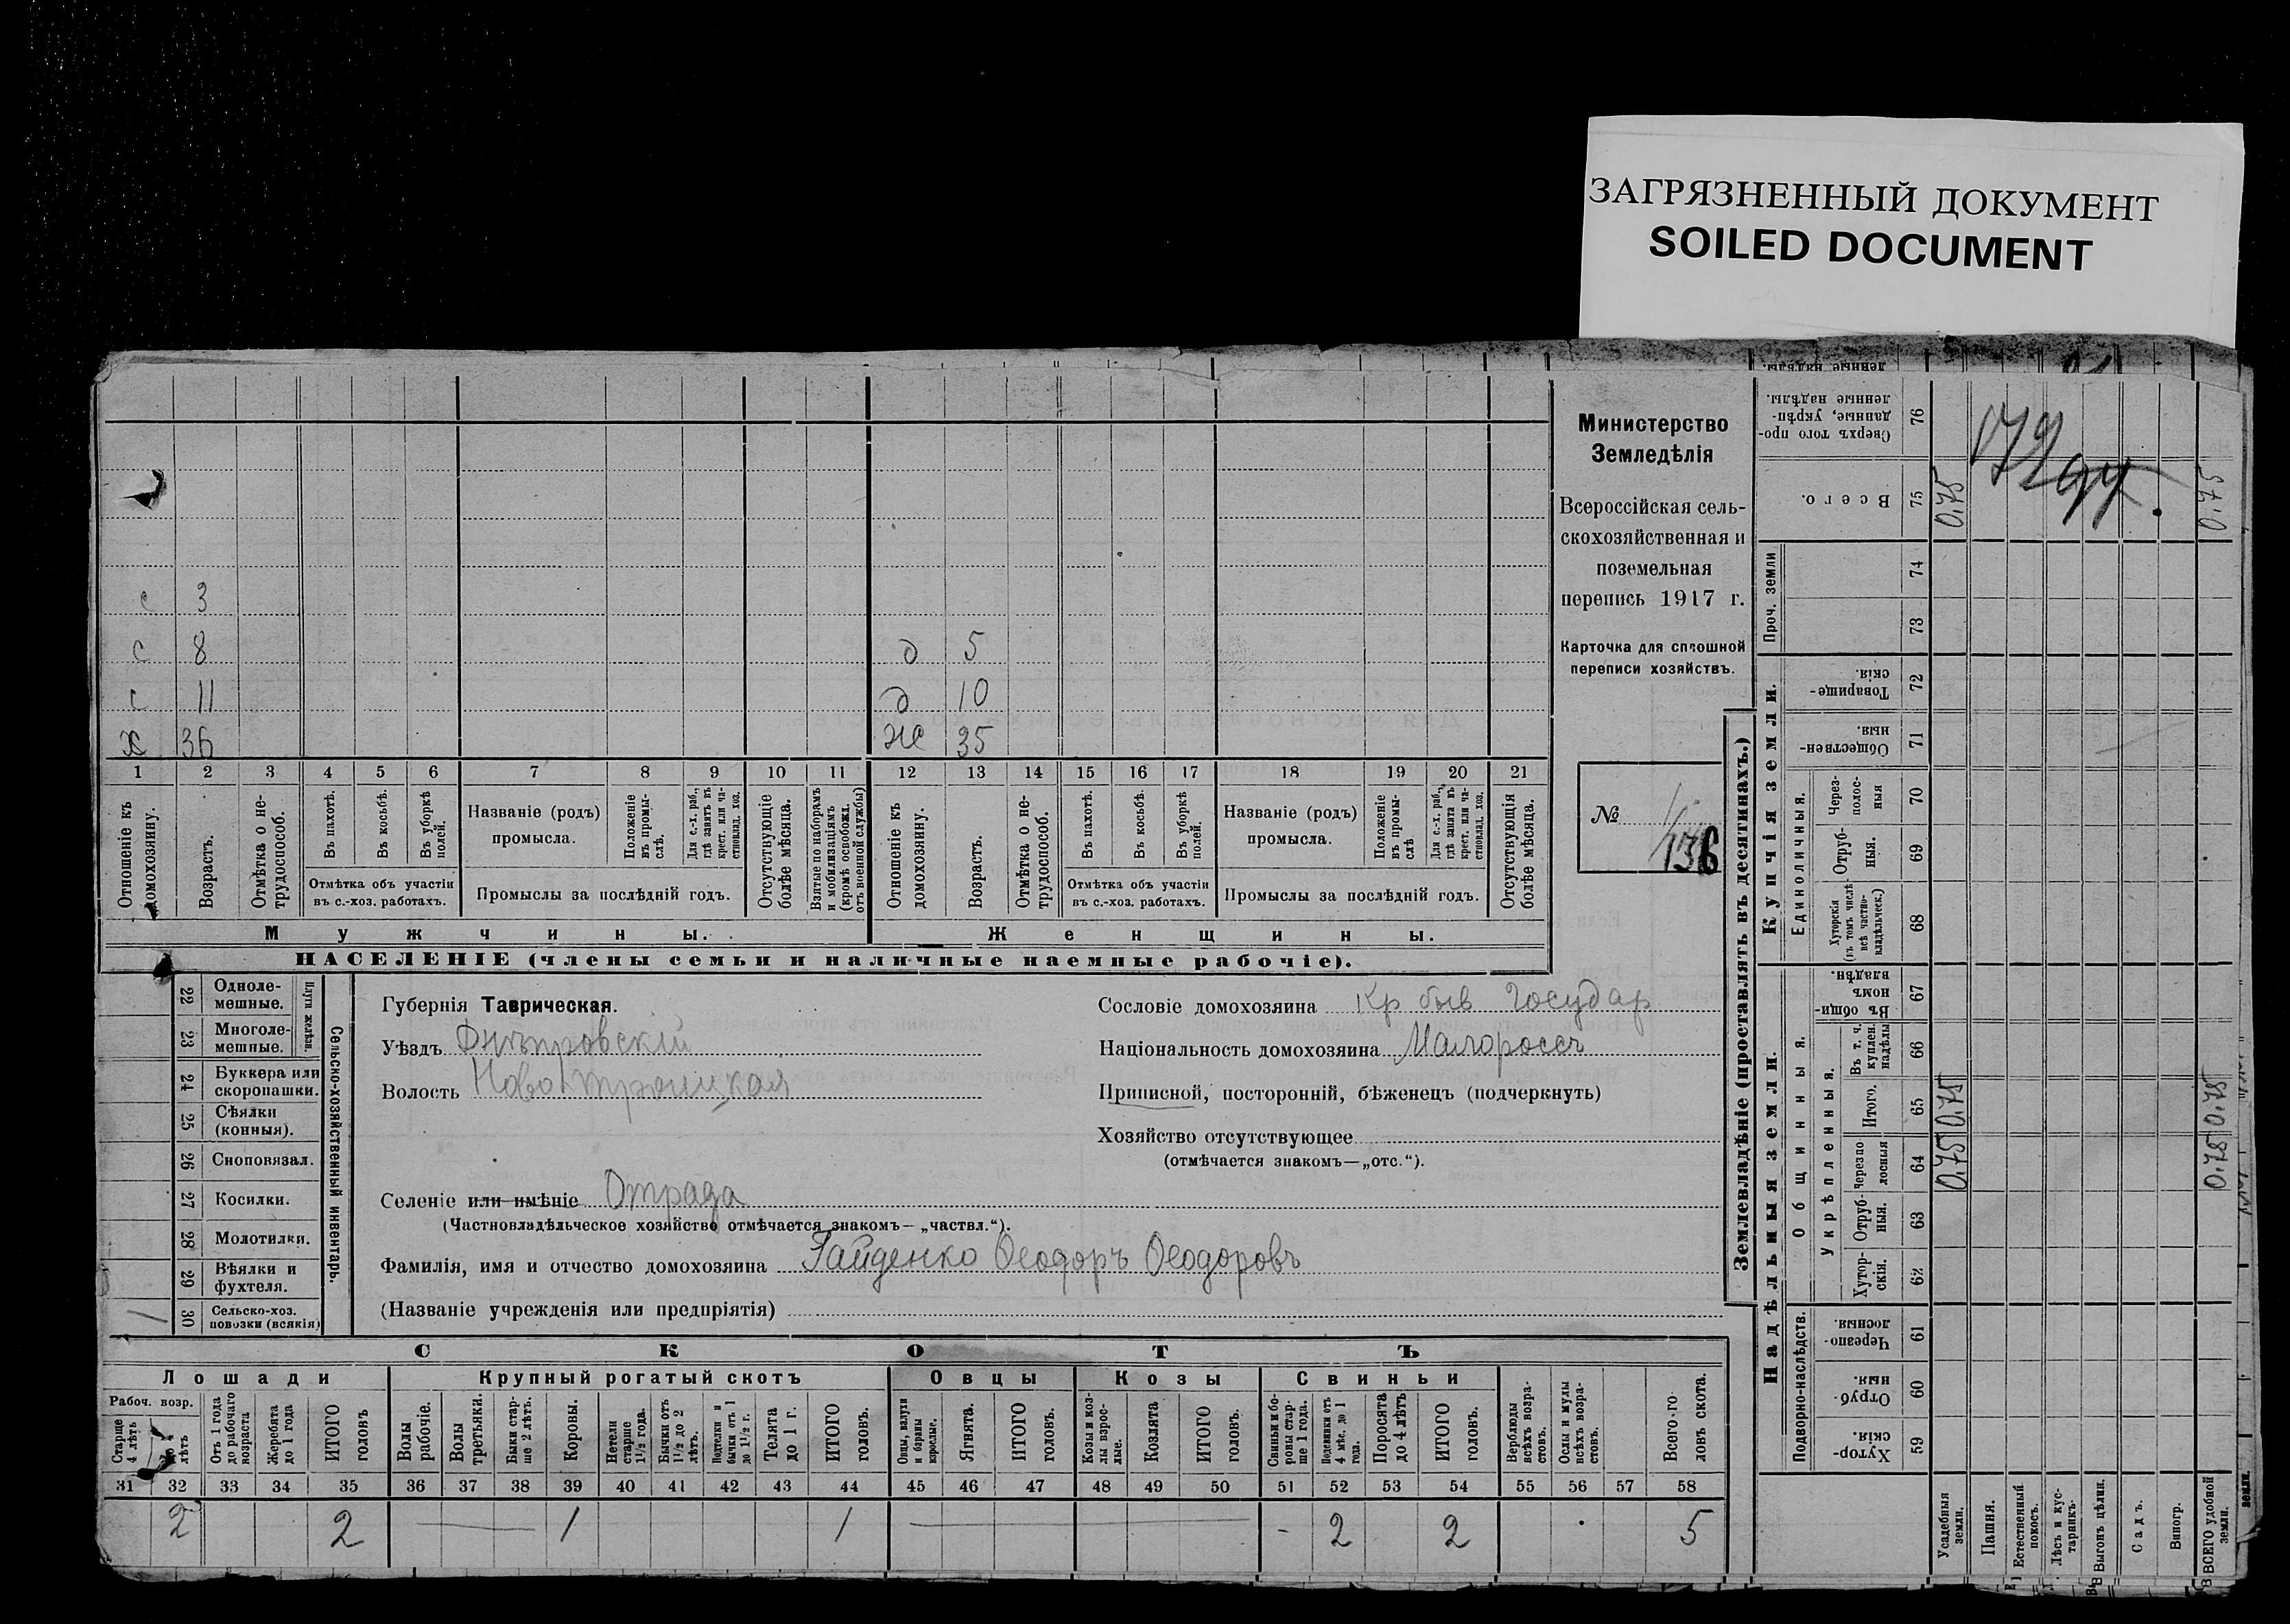 ЗАГРЯЗНЕННЫЙ ДОКУМЕНТ
SOILED DOCUMENT
Министерство
Земледѣлія
Всероссійская сель-
скохозяйственная и
поземельная
перепись 1917 г.
Карточка для сплошной
переписи хозяйствъ.
№ 136
с 3
с 8 д 5
с 11 д 10
х 36 ж 35
1 2 3 4 5 6 7 8 9 10 11 12 13 14 15 16 17 18 19 20 21
Отношеніе къ домохозяину.
Возрастъ.
Отмѣтка о не-трудоспособ.
Въ пахотѣ.
Въ косьбѣ.
Въ уборкѣ полей.
Отмѣтка объ участіи
въ с.-хоз. работахъ.
Названіе (родъ)
промысла.
Положеніе въ промы-слѣ.
Для с.-х. раб., гдѣ занятъ въ крест. или ча-стновлад. хоз.
Промыслы за послѣдній годъ.
Отсутствующіе болѣе мѣсяца.
Взятые по наборамъ и мобилизаціямъ (кромѣ освобожд. отъ военной службы)
Отношеніе къ домохозяину.
Возрастъ.
Отмѣтка о не-трудоспособ.
Въ пахотѣ.
Въ косьбѣ.
Въ уборкѣ полей.
Отмѣтка объ участіи
въ с.-хоз. работахъ.
Названіе (родъ)
промысла.
Положеніе въ промы-слѣ
Для с.-х. раб., гдѣ занята въ крест. или ча-стновлад. хоз.
Промыслы за послѣдній годъ.
Отсутствующія болѣе мѣсяца.
Мужчины. Женщины.
НАСЕЛЕНІЕ (члены семьи и наличные наемные рабочіе).
22 Одноле-мешные.
23 Многоле-мешные.
Плуги желѣзн.
24 Буккера или скоропашки.
25 Сѣялки (конныя).
26 Сноповязал.
27 Косилки.
28 Молотилки.
29 Вѣялки и фухтеля.
30 Сельско-хоз. повозки (всякія)
Сельско-хозяйственный инвентарь.
Губернія Таврическая.
Уѣздъ Днѣпровскій
Волость Ново Троицкая
Селеніе или имѣніе Отрада
(Частновладѣльческое хозяйство отмѣчается знакомъ—„частвл.“).
Фамилія, имя и отчество домохозяина Гайденко Ѳеодоръ Ѳеодоровъ
(Названіе учрежденія или предпріятія)
Сословіе домохозяина Кр быв Государ
Національность домохозяина Малороссъ
Приписной, посторонній, бѣженецъ (подчеркнуть)
Хозяйство отсутствующее
(отмѣчается знакомъ—„отс.“).
СКОТЪ
Лошади Крупный рогатый скотъ Овцы Козы Свиньи
Рабоч. возр.
Старше 4 лѣтъ
лѣтъ
Отъ 1 года до рабочаго возраста
Жеребята до 1 года
ИТОГО головъ
Волы рабочіе.
Волы третьяки.
Быки стар-ше 2 лѣтъ.
Коровы.
Нетели старше 1½ года.
Бычки отъ 1½ до 2 лѣтъ.
Подтелки и бычки отъ 1 до 1½ г.
Телята до 1 г.
ИТОГО головъ.
Овцы, валухи и бараны взрослые.
Ягнята.
ИТОГО головъ.
Козы и коз-лы взрос-лые.
Козлята
ИТОГО головъ.
Свиньи и бо-ровы стар-ше 1 года.
Подсвинки отъ 4 мѣс. до 1 года.
Поросята до 4 лѣтъ
ИТОГО головъ.
Верблюды всѣхъ возра-стовъ.
Ослы и мулы всѣхъ возра-стовъ.
Всего го-ловъ скота.
31 32 33 34 35 36 37 38 39 40 41 42 43 44 45 46 47 48 49 50 51 52 53 54 55 56 57 58
2 2 — 1 1 — - 2 2 5
Землевладѣніе (проставлять въ десятинахъ.)
Купчія земли.
Надѣльныя земли.
Проч. земли
Единоличныя.
Общинныя.
Укрѣпленныя.
Подворно-наслѣдств.
денные надѣлы.
Сверхъ того про-данные, укрѣп-ленные надѣлы. 76
Всего. 75
74
73
Товарище-скія. 72
Обществен-ныя. 71
Через-полос-ныя 70
Отруб-ныя. 69
Хуторскія (въ томъ числѣ всѣ частно-владѣльческ.) 68
Въ общин-номъ владѣн. 67
Въ т. ч. куплен. надѣлы 66
Итого. 65
Черезпо лосныя 64
Отруб-ныя. 63
Хутор-скія. 62
Черезпо-лосныя. 61
Отруб-ныя. 60
Хутор-скія. 59
Усадебныя земли.
Пашня.
Естественный покосъ.
Лѣсъ и кус-тарникъ.
Выгонъ цѣлин.
Садъ.
Виногр.
ВСЕГО удобной земли.
земли.
0.75 0.75 0.75
0.75 0.75 0.75